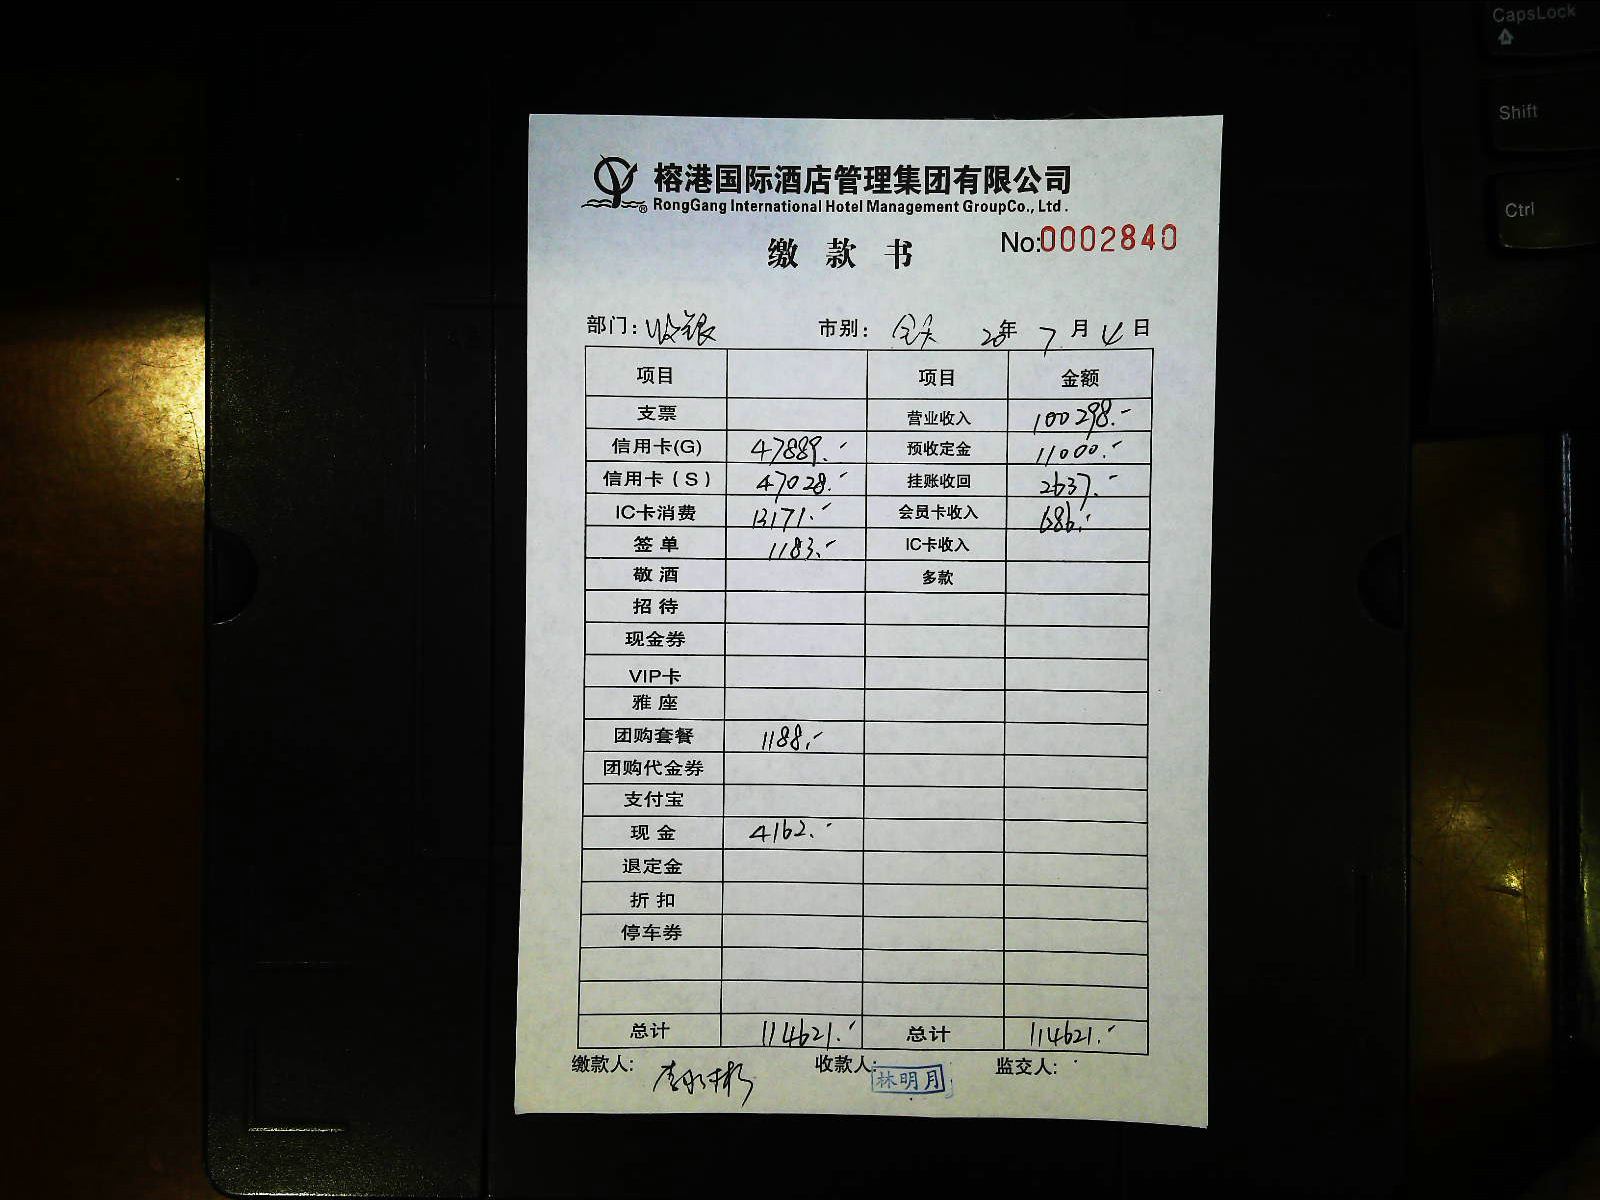 CapsLock
Shift
Ctrl
榕港国际酒店管理集团有限公司
® RongGang International Hotel Management GroupCo., Ltd.
缴款书 No:0002840
部门: 收银 市别: 全天 年 7 月 4 日
项目 项目 金额
支票 营业收入 100298.-
信用卡(G) 47889.- 预收定金 11000.-
信用卡(S) 47028.- 挂账收回 2637.-
IC卡消费 13171.- 会员卡收入 686.-
签单 1183.- IC卡收入
敬酒 多款
招待
现金券
VIP卡
雅座
团购套餐 1188.-
团购代金券
支付宝
现金 4162.-
退定金
折扣
停车券
总计 114621.- 总计 114621.-
缴款人: 收款人: 林明月 监交人: